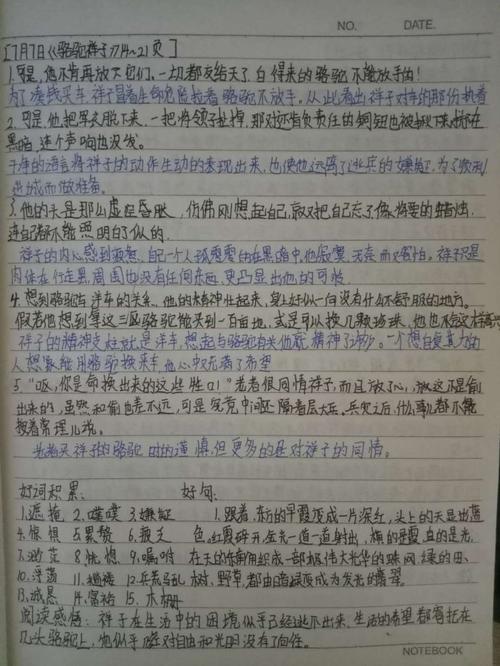 NO. DATE.
[7月7日《骆驼祥子》14~21页]
1.可是，他不肯再放大它们，一切都交给天了，白得来的骆驼不能放手的！
为了凑钱买车，祥子冒着生命危险拉着骆驼不放手。从此看出祥子对车的那份执着
2.可是他把军衣脱下来，一把将领子扯掉，那对还肯负责任的铜钮也被揪下来，掷在
黑暗，连个声响也没发。
干净的语言将祥子的动作生动的表现出来，也使他远离了逃兵的嫌疑，为了顺利
进城而做准备。
3.他的头是那么虚空昏胀，仿佛刚想起自己，就又把自己忘了，像将要的蜡烛，
连自己都不能照明白了似的。
祥子的内心感到疲惫，自己一个人孤零零的在黑暗中，他寂寞、无奈而又害怕。祥子只是
肉体在行走，周围也没有任何东西，更凸显出他的可怜
4.想到骆驼与洋车的关系，他的精神壮起来，身上好似一向没有什么不舒服的地方。
假若他想到拿这三匹骆驼能买到一百亩地，或是可以换几颗珍珠，他也不会这样高兴
祥子的精神支柱就是洋车，想起与骆驼有关他底精神了
人想象能用骆驼换来车，他心中充满了希望
5.“哎，你是命换出来的这些牲口！”老者很同情祥子，而且放了心，这不是偷
出来的，虽然和偷也差不远，可是究竟中间还隔着层大兵。兵灾之后，什么事儿都不能
按着常理儿说。
老者买祥子的骆驼时的谨慎，但更多的是对祥子的同情。
好词积累： 好句：
1.遮掩 2.噗噗 3.嫌疑 1.跟着，东方的早霞变成一片深红，头上的天显出蓝
4.惊惧 5.累赘 6.披 色，红霞碎开，金光一道一道射出，横的是霞，直的是光，
7.渺茫 8.恍惚 9.嘱咐 在天的东南角织成一部极伟大光华的蛛网，绿的田、
10.浮荡 11.趔趄 12.兵荒马乱 树，野草，都由暗绿变成为发光的翡翠
13.诚恳 14.富裕 15.木栅
阅读感悟：祥子在生活中的困境似乎已经逃不出来，生活的希望都寄托在
几头骆驼上，他似乎对自由和光明没有了向往。
NOTEBOOK